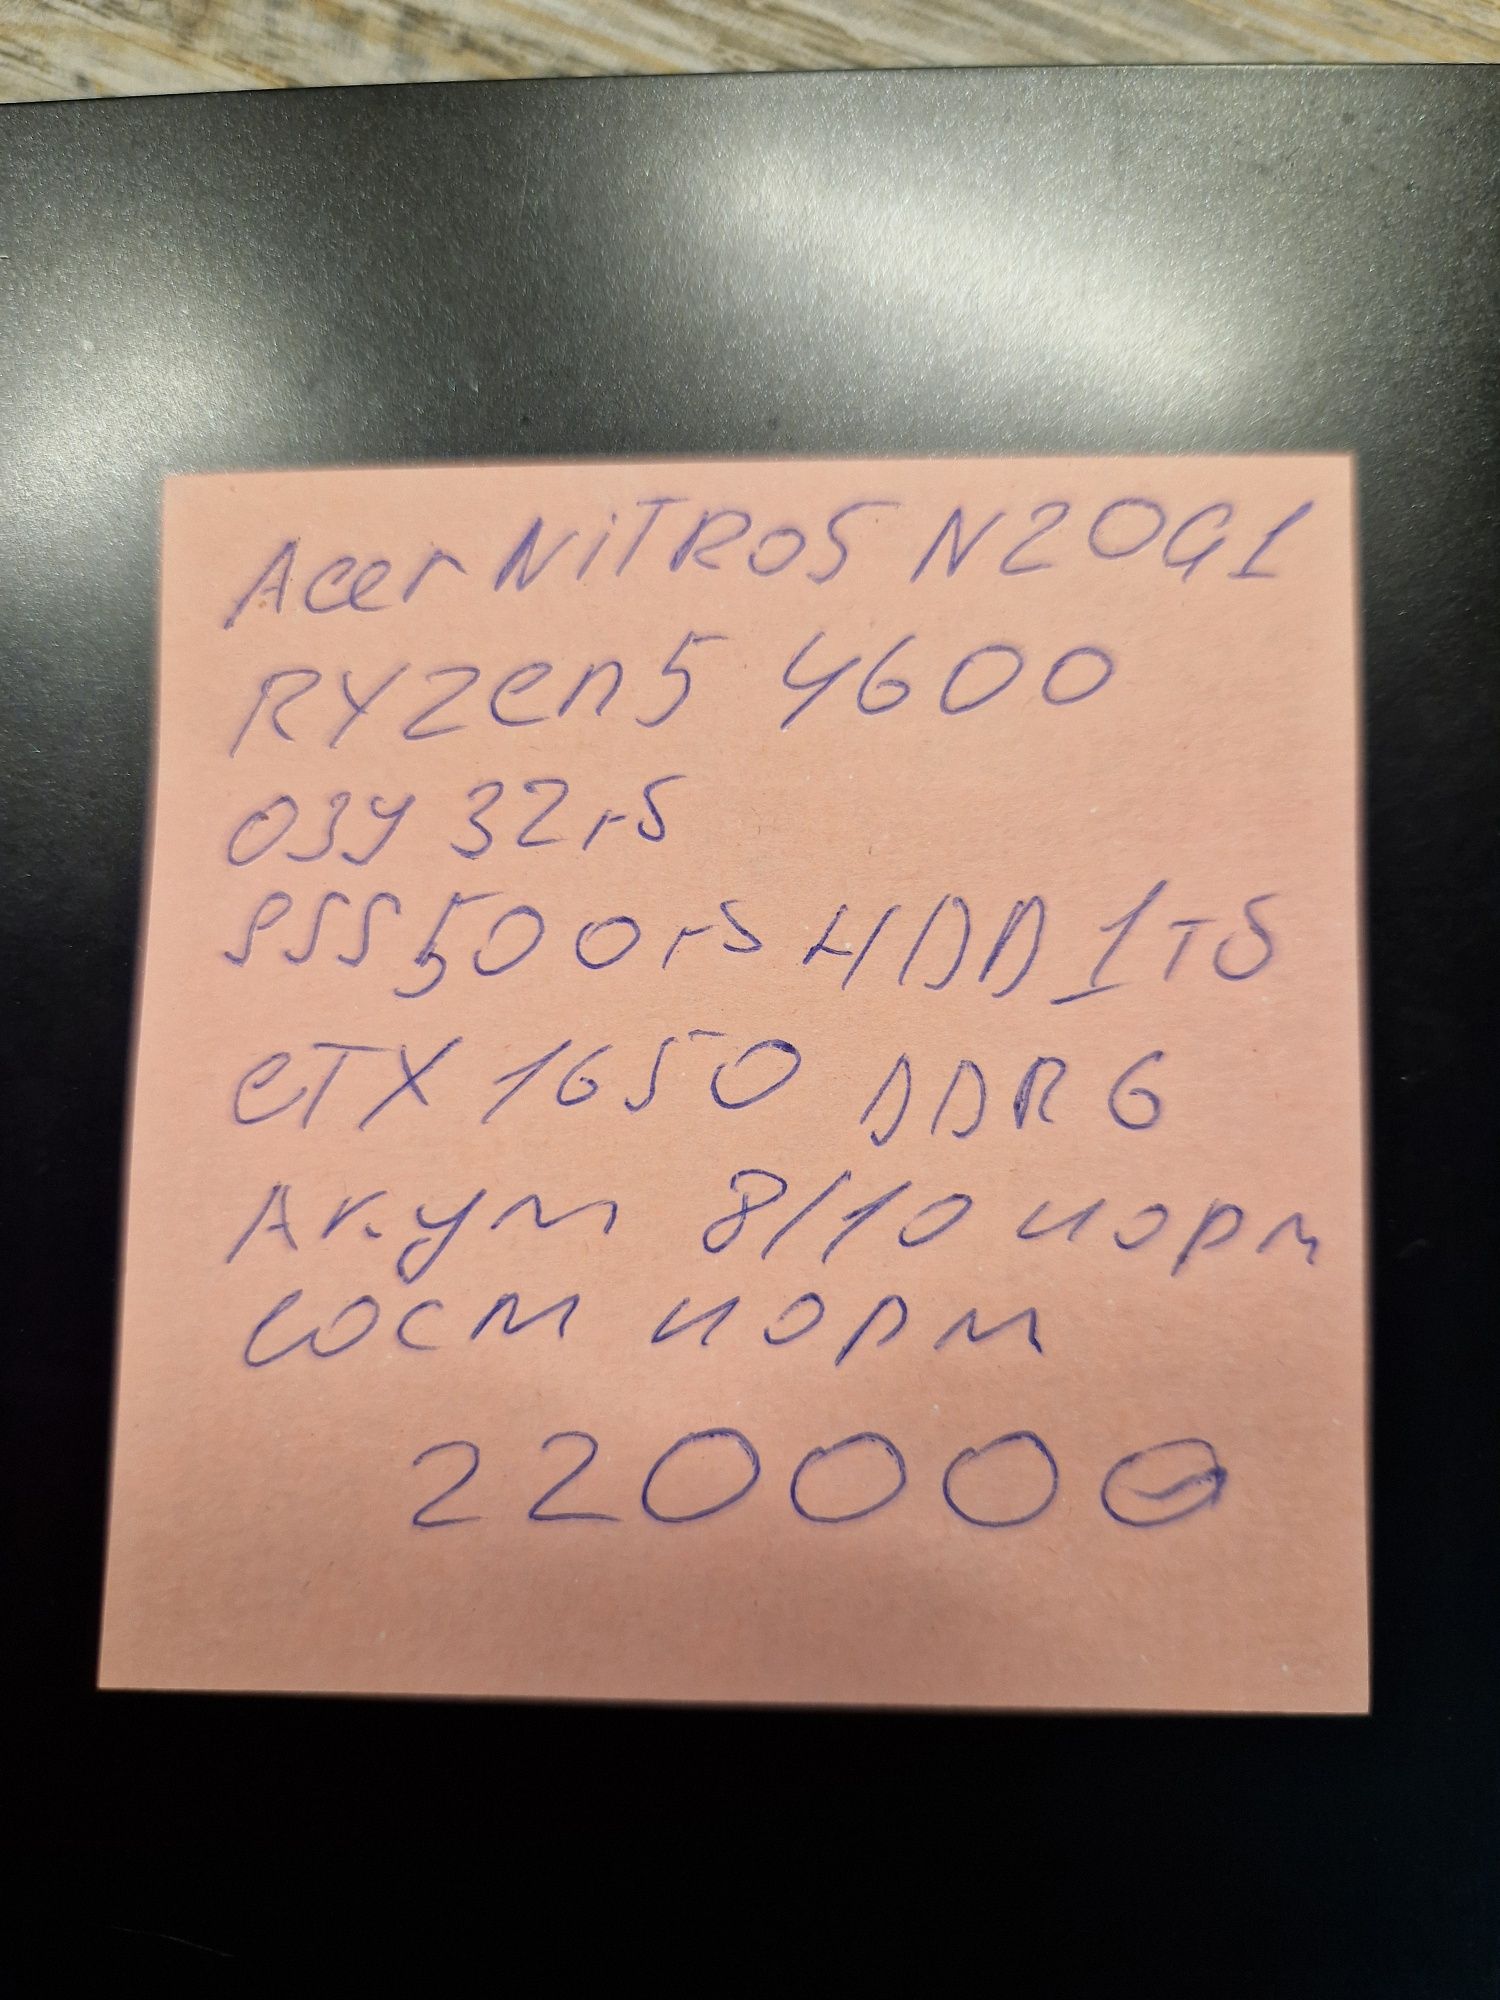 Acer NiTRO5 N20G1
RYZen5 4600
ОЗУ 32гб
SSD 500гб HDD 1Тб
GTX 1650 DDR6
Акум 8/10 норм
сост норм
220000